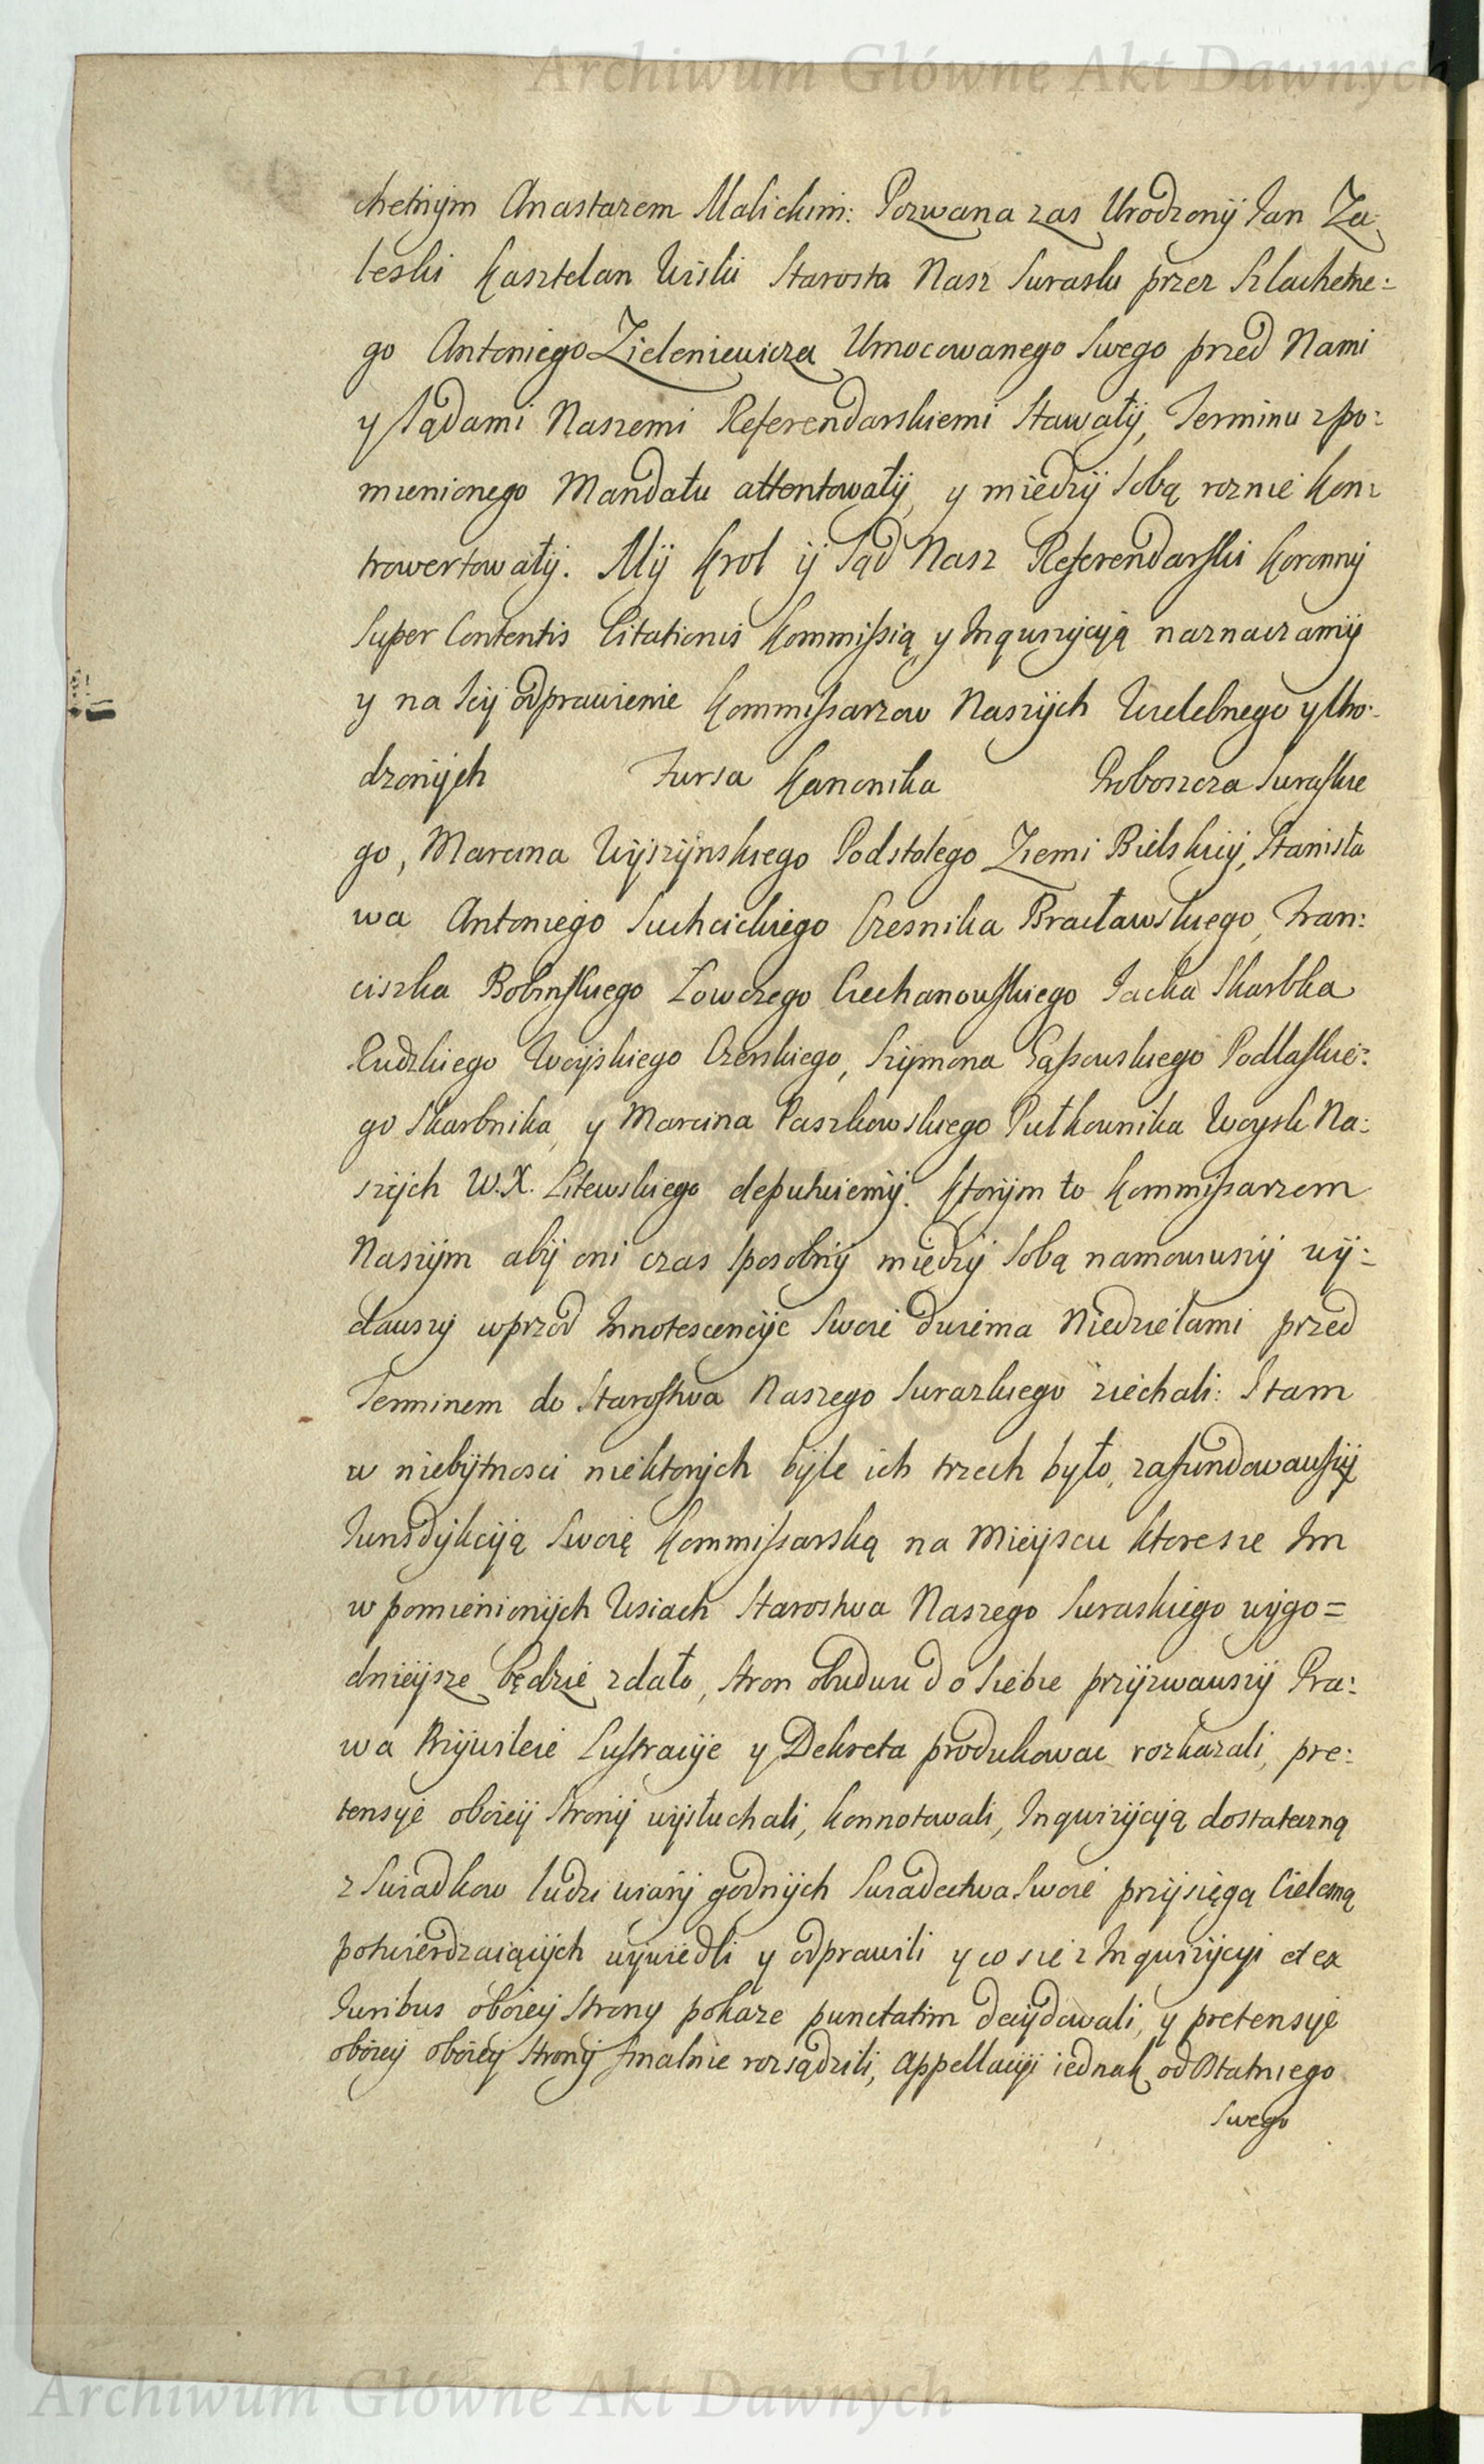 Archiwum Główne Akt Dawnych
chetnym Anastazem Malickim: Pozwana zas Urodzony Jan Za:
leski Kasztelan Wiski Starosta Nasz Suraski przez Szlachetne:
go Antoniego Zieleniewicza Umocowanego Swego przed Nami
y Sądami Naszemi Referendarskiemi Stawały, Terminu zpo:
mienionego Mandatu attentowały, y miedzy Sobą roznie kon:
trowertowały. My Krol y Sąd Nasz Referendarski Koronny
Super Contentis Citationis Kommissią y Inquizycyą naznaczamy
y na Jey odprawienie Kommissarzow Naszych Wielebnego y Uro:
dzonych Tursa Kanonika Proboszcza Suraskie
go, Marcina Wyszynskiego Podstolego Ziemi Bielskiey, Stanisła
wa Antoniego Suchcickiego Czesnika Bracławskiego, Fran:
ciszka Bobinskiego Łowczego Ciechanowskiego Jacka Skarbka
Rudzkiego Woyskiego Czerskiego, Szymona Gąssowskiego Podlaskie:
go Skarbnika, y Marcina Paszkowskiego Pułkownika Woysk Na:
szych W. X. Litewskiego deputuiemy. Ktorym to Kommissarzom
Naszym aby oni czas sposobny miedzy Sobą namowiwszy wy:
dawszy wprzod Innotescencye Swoie dwiema Niedzielami przed
Terminem do Starostwa Naszego Surazkiego ziechali: Y tam
w niebytnosci niektorych byle ich trzech było, zafundowawszy
Jurisdykcyą Swoię Kommissarską na Mieyscu ktore sie Im
w pomienionych Wsiach Starostwa Naszego Suraskiego wygo=
dnieysze będzie zdało, Stron obudwu do Siebie przyzwawszy Pra:
wa Przywileie Lustracye y Dekreta produkowac rozkazali, pre:
tensye oboiey Strony wysłuchali, konnotowali, Inquizycyą dostateczną
z Swiadkow ludzi wiary godnych Swiadectwa Swoie przysięgą Cielesną
potwierdzaiących wywiedli y odprawili y co sie z Inquizycyi et ex
Juribus oboiey Strony pokaze punctatim decydowali, y pretensye
oboiey oboiey Strony finalnie rozsądzili, Appellacyi iednak od Ostatniego
Swego
Archiwum Główne Akt Dawnych